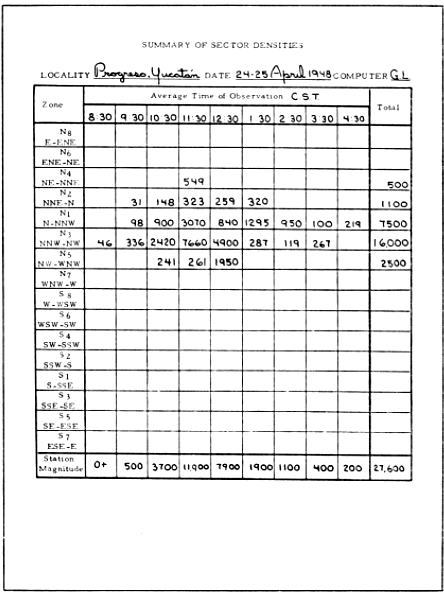 SUMMARY OF SECTOR DENSITIES
LOCALITY Progreso, Yucatán DATE 24-25 April 1948 COMPUTER G L
Zone Average Time of Observation C S T. Total
8:30 9 30 10 30 11:30 12 30 1 30 2 30 3 30 4:30
N8
E-ENE
N6
ENE-NE
N4
NE-NNE 549 500
N2
NNE-N 31 148 323 259 320 1100
N1
N-NNW 98 900 3070 840 1295 950 100 219 7500
N3
NNW-NW 46 336 2420 7660 4900 287 119 267 16,000
N5
NW-WNW 241 261 1950 2500
N7
WNW-W
S8
W-WSW
S6
WSW-SW
S4
SW-SSW
S2
SSW-S
S1
S-SSE
S3
SSE-SE
S5
SE-ESE
S7
ESE-E
Station
Magnitude 0+ 500 3700 11,900 7900 1900 1100 400 200 27,600